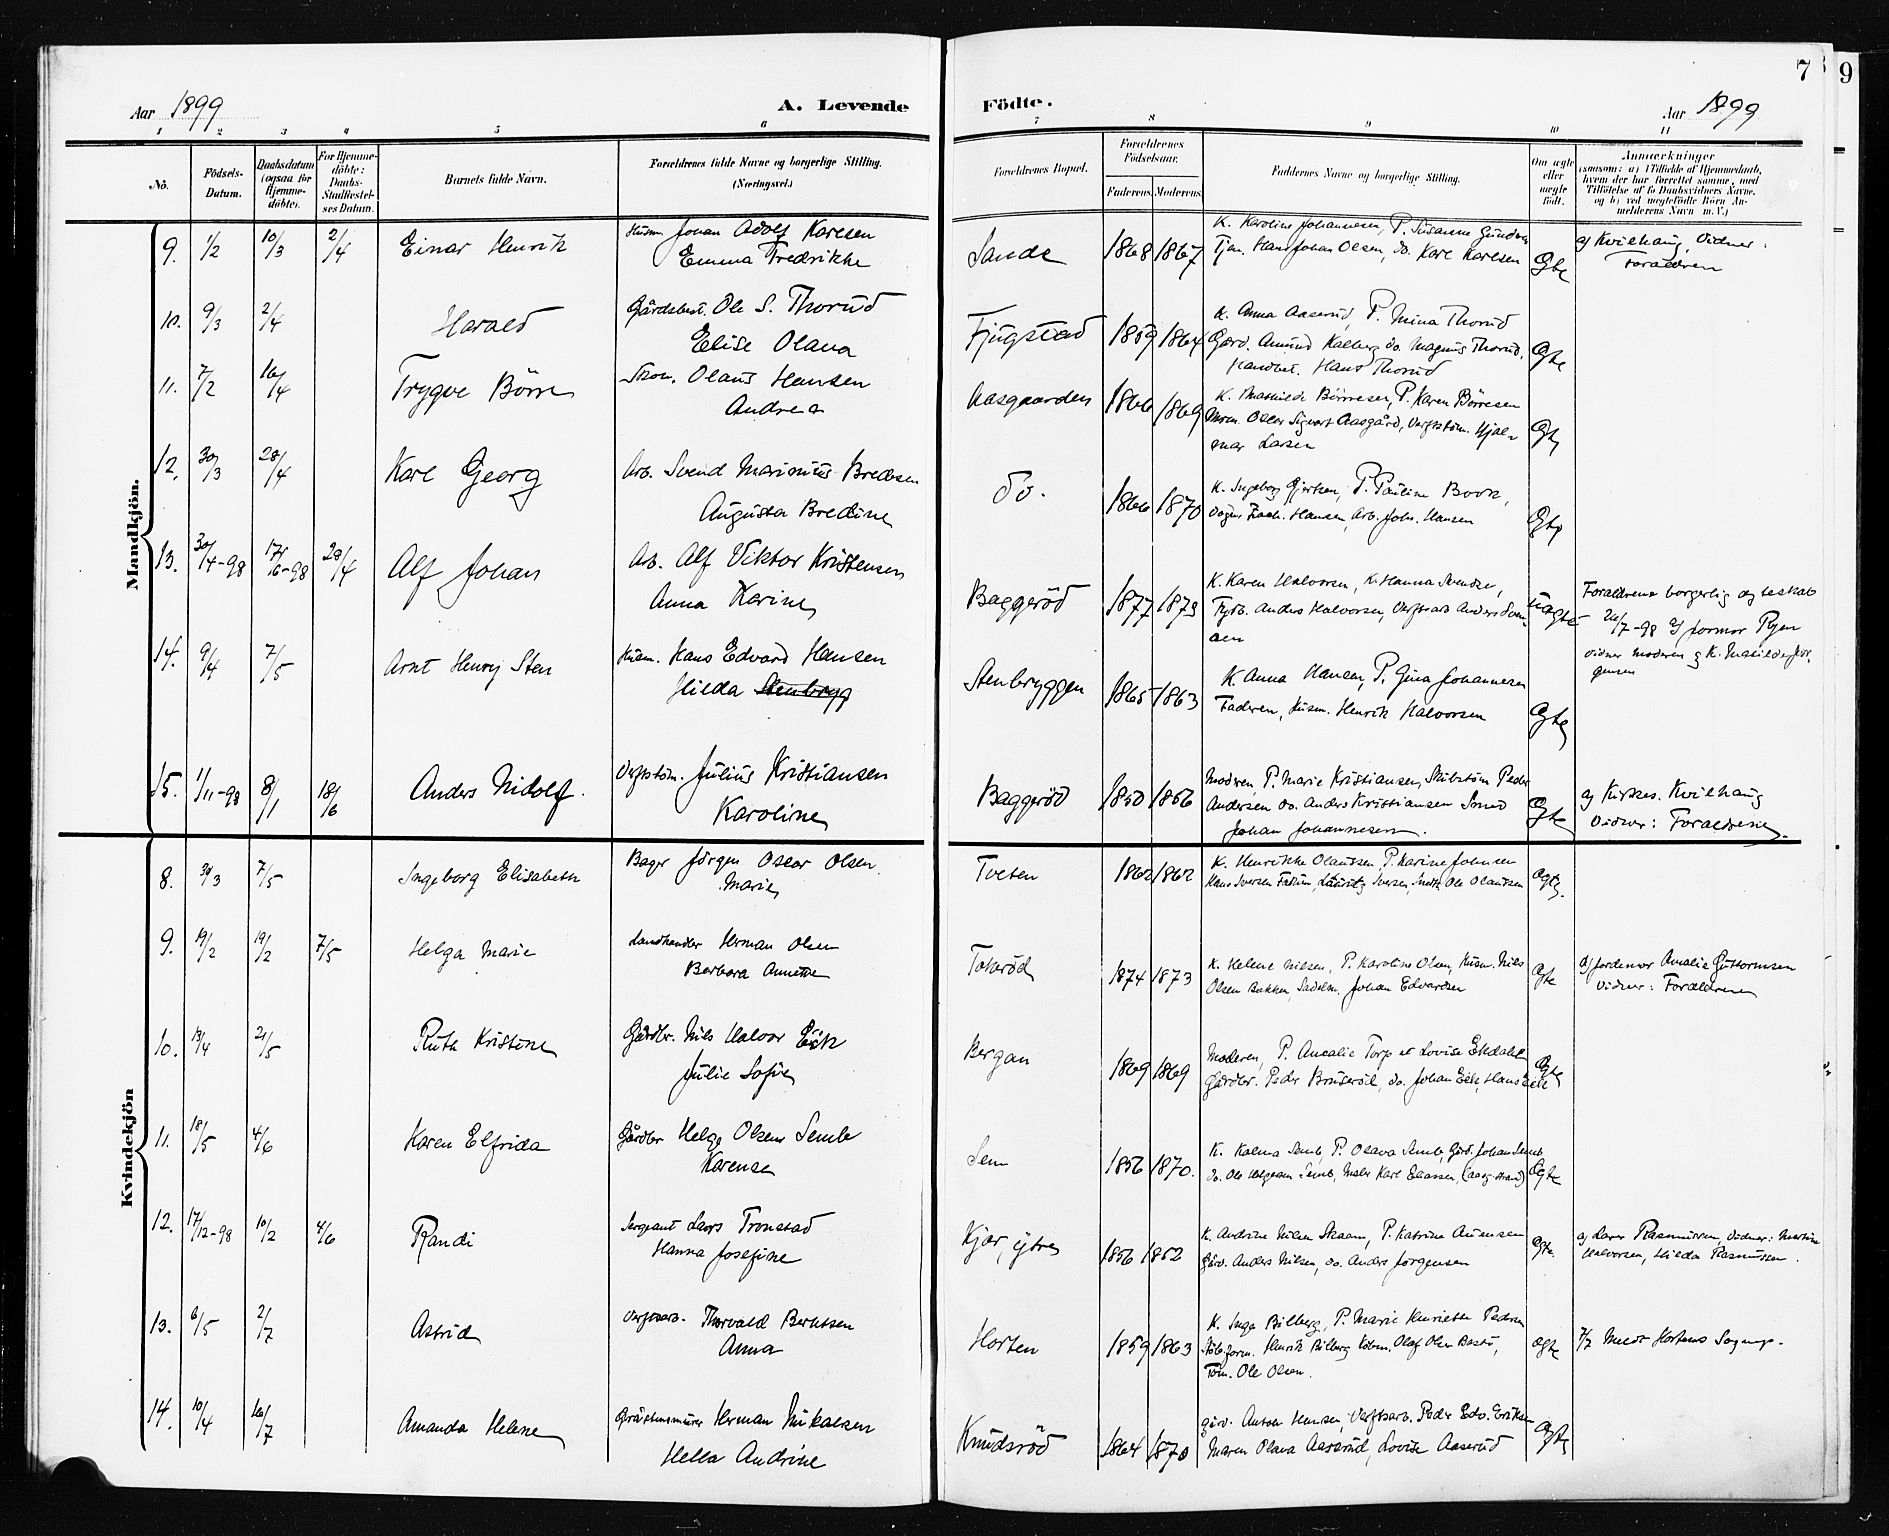 7
9
Aar 1899
A. Levende
Födte.
Aar 1899
1 2 3 4 5 6 7 8 9 10 11
No.
Födsels-Datum.
Daabsdatum (ogsaa for Hjemme-döbte).
For Hjemme-döbte: Daabs-Stadfæstel-ses Datum.
Barnets fulde Navn.
Forældrenes fulde Navne og borgerlige Stilling. (Næringsvei.)
Forældrenes Bopæl.
Forældrenes Födselsaar.
Faderens. Moderens.
Faddernes Navne og borgerlige Stilling.
Om ægte eller uægte födt.
Anmærkninger
(saasom: a) i Tilfælde af Hjemmedaab, hvem der har forrettet samme, med Tilföielse af to Daabsvidners Navne, og b) ved uægtefödte Börn An-melderens Navn m. V.)
Mandkjön.
9. 1/2 10/3 2/4 Einar Henrik
Husm. Johan Adolf Karlsen
Emma Fredrikke
Sande 1868 1867
K. Karoline Johannesen, P. Susanne Gunders
Tjen. Hans Johan Olsen, do. Karl Karlsen
Ægte
af Kvilhaug, Vidner:
Forældren
10. 9/3 2/4 Harald
Gårdsbest. Ole S. Thorud
Elise Olava
Fjugstad 1859 1864
K. Anna Aaserud, P. Mina Thorud
Gård. Amund Kalberg, do. Magnus Thorud,
Handbet. Hans Thorud
Ægte
11. 7/2 16/4 Trygve Börre
Skom. Olaus Hansen
Andrea
Aasgaarden 1866 1869
K. Mathilde Börresen, P. Karen Börresen
Murm. Oscar Sigvart Aasgård, Verftstöm. Hjal-
mar Larsen
Ægte
12. 30/3 28/4 Karl Georg
Arb. Svend Marinius Bredesen
Augusta Bredine
do. 1866 1870
K. Ingeborg Gjertsen, P. Pauline Book,
Hansen, Arb. Joh. Hansen
Ægte
13. 30/4-98 17/6-98 28/4 Alf Johan
Arb. Alf Viktor Kristensen
Anna Karine
Baggeröd 1877 1879
K. Karen Halvorsen, K. Hanna Svendse,
Fyrb. Anders Halvorsen, Verftsarb Anders Sven-
sen
Uægte
Forældrene borgerlig ægteskab
26/7-98 af formor Ryen
Vidner Moderen og K. Matilde Jör-
gensen
14. 9/4 7/5 Arnt Henry Sten
Husm. Hans Edvard Hansen
Hilda Stenbrygg
Stenbryggen 1865 1863
K. Anna Hansen, P. Gina Johannesen
Faderen, Husm. Henrik Halvorsen
Ægte
15. 1/11-98 8/1 18/6 Anders Nidolf.
Verftstöm. Julius Kristiansen
Karoline
Baggeröd 1850 1856
Moderen, P. Marie Kristiansen, Skibstöm Peder
Andersen do. Anders Kristiansen Smed
Johan Johannesen.
Ægte
af Kirkes. Kvilhaug
Vidner: Forældrene.
Kvindekjön
8. 30/3 7/5 Ingeborg Elisabeth
Bager Jörgen Oscar Olsen
Marie
Tveten 1862 1862
K. Henrikke Olaussen, P. Karine Johnsen
Hans Iversen Falkum, Lauritz Iversen, Smed Ole Olaussen
Ægte.
9. 19/2 19/2 7/5 Helga Marie
Landhandler Herman Olsen
Barbara Annette
Tokeröd 1874 1873
K. Helene Nilsen, P. Karoline Olsen, Husm. Nils
Olsen Bakken, Sadelm. Johan Edvardsen
Ægte
af Jordemor Amalie Guttormsen
Vidner: Forældrene
10. 13/4 21/5 Ruth Kristine
Gårdbr. Nils Halvor Eik
Julie Sofie
Bergan 1869 1869
Moderen, P. Amalie Torp et Lovise Ekdahl
Gårdbr. Peder Bruseröd, do. Johan Eik, Hans Eik
Ægte
11. 18/5 4/6 Karen Elfrida
Gårdbr Helge Olsen Semb
Karense
Sem 1856 1870.
K. Kalma Semb, P. Olava Semb, Gård. Johan Semb
do. Ole Helgesen Semb, Maler Karl Eliassen, (Aasgstrand)
Ægte
12. 17/12-98 10/2 4/6 Randi
Sergeant Lars Tronstad
Hanna Josefine
Kjær, ytre 1856 1852
K. Andrine Nilsen Skaane, P. Katrine Auensen
Gård. Anders Nilsen, do. Anders Jörgensen
Ægte.
af Lærer Rasmussen, Vidner: Martine
Halvorsen, Hilda Rasmussen.
13. 6/5 2/7 Astrid
Verftsarb. Thorvald Berntsen
Anna
Horten 1859 1863
K. Inga Bilberg, P. Marie Henriette Pedersen
Stöb. form. Henrik Bilberg, Köbm. Olaf Olsen Bastö,
Töm. Ole Olsen.
Ægte
7/7 Meldt Hortens Sognep.
14. 10/4 16/7 Amanda Helene
Gråstensmurer Herman Mikalsen
Hella Andrine
Knudsröd 1864 1870
Gård. Anton Hansen, Verftsarb. Peder Edv. Eriksen
Maren Olava Aaserud, Lovise Aaserud
Ægte